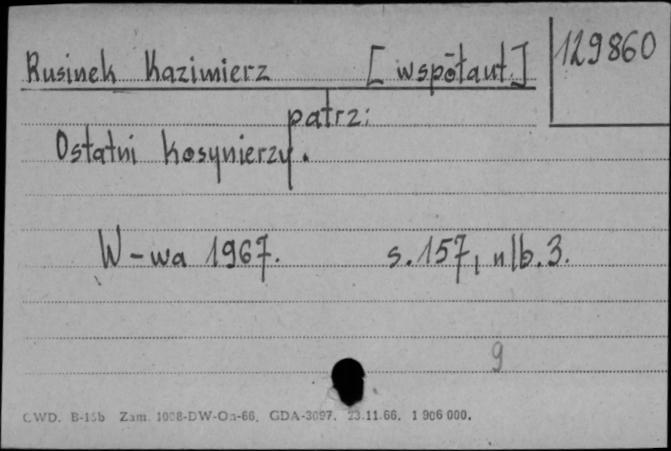 Rusinek Kazimierz [współaut.]
129860
patrz:
Ostatni kosynierzy.
W-wa 1967. s. 157, nlb. 3.
9
CWD. B-15b Zam. 1008-DW-On-66. GDA-3097. 23.11.66. 1 906 000.